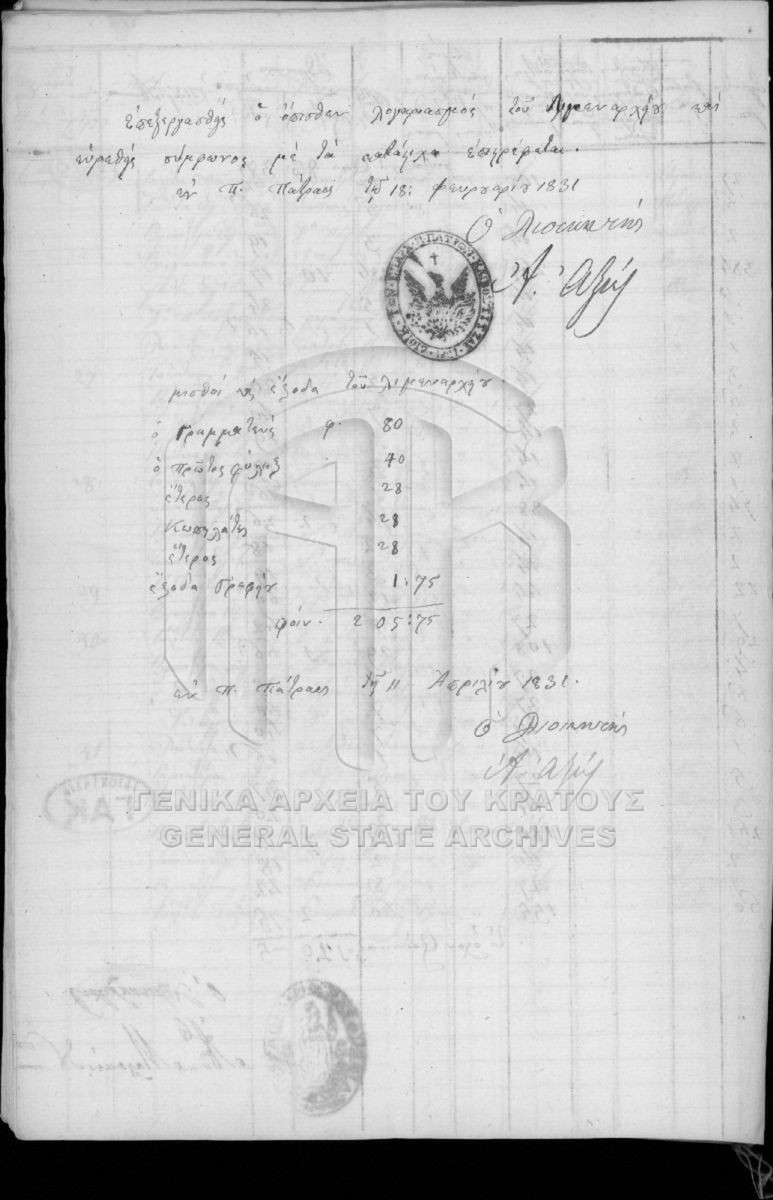 ἐπεξεργασθεὶς ὁ ὄπισθεν λογαριασμὸς τοῦ Λιμενάρχου καὶ
εὑρεθεὶς σύμφωνος μὲ τὰ κατάστιχα ἐπιστρέφεται.
ἐν Π. Πάτραις τῇ 18: φευρουαρίου 1831
Ὁ Διοικητὴς
Ἀ. Ἀξιώ
μισθοὶ καὶ ἔξοδα τοῦ λιμεναρχείου
ὁ Γραμματεὺς φ. 80
ὁ πρῶτος φύλαξ 40
ἕτερος 28
Κωπηλάτης 28
ἕτερος 28
ἔξοδα Γραφείου 1:75
φοίν. 205:75
ἐν Π. Πάτραις τῇ 11 Ἀπριλίου 1831.
Ὁ Διοικητὴς
Ἀ. Ἀξιώ
ΓΑΚ
ΓΕΝΙΚΑ ΑΡΧΕΙΑ ΤΟΥ ΚΡΑΤΟΥΣ
GENERAL STATE ARCHIVES